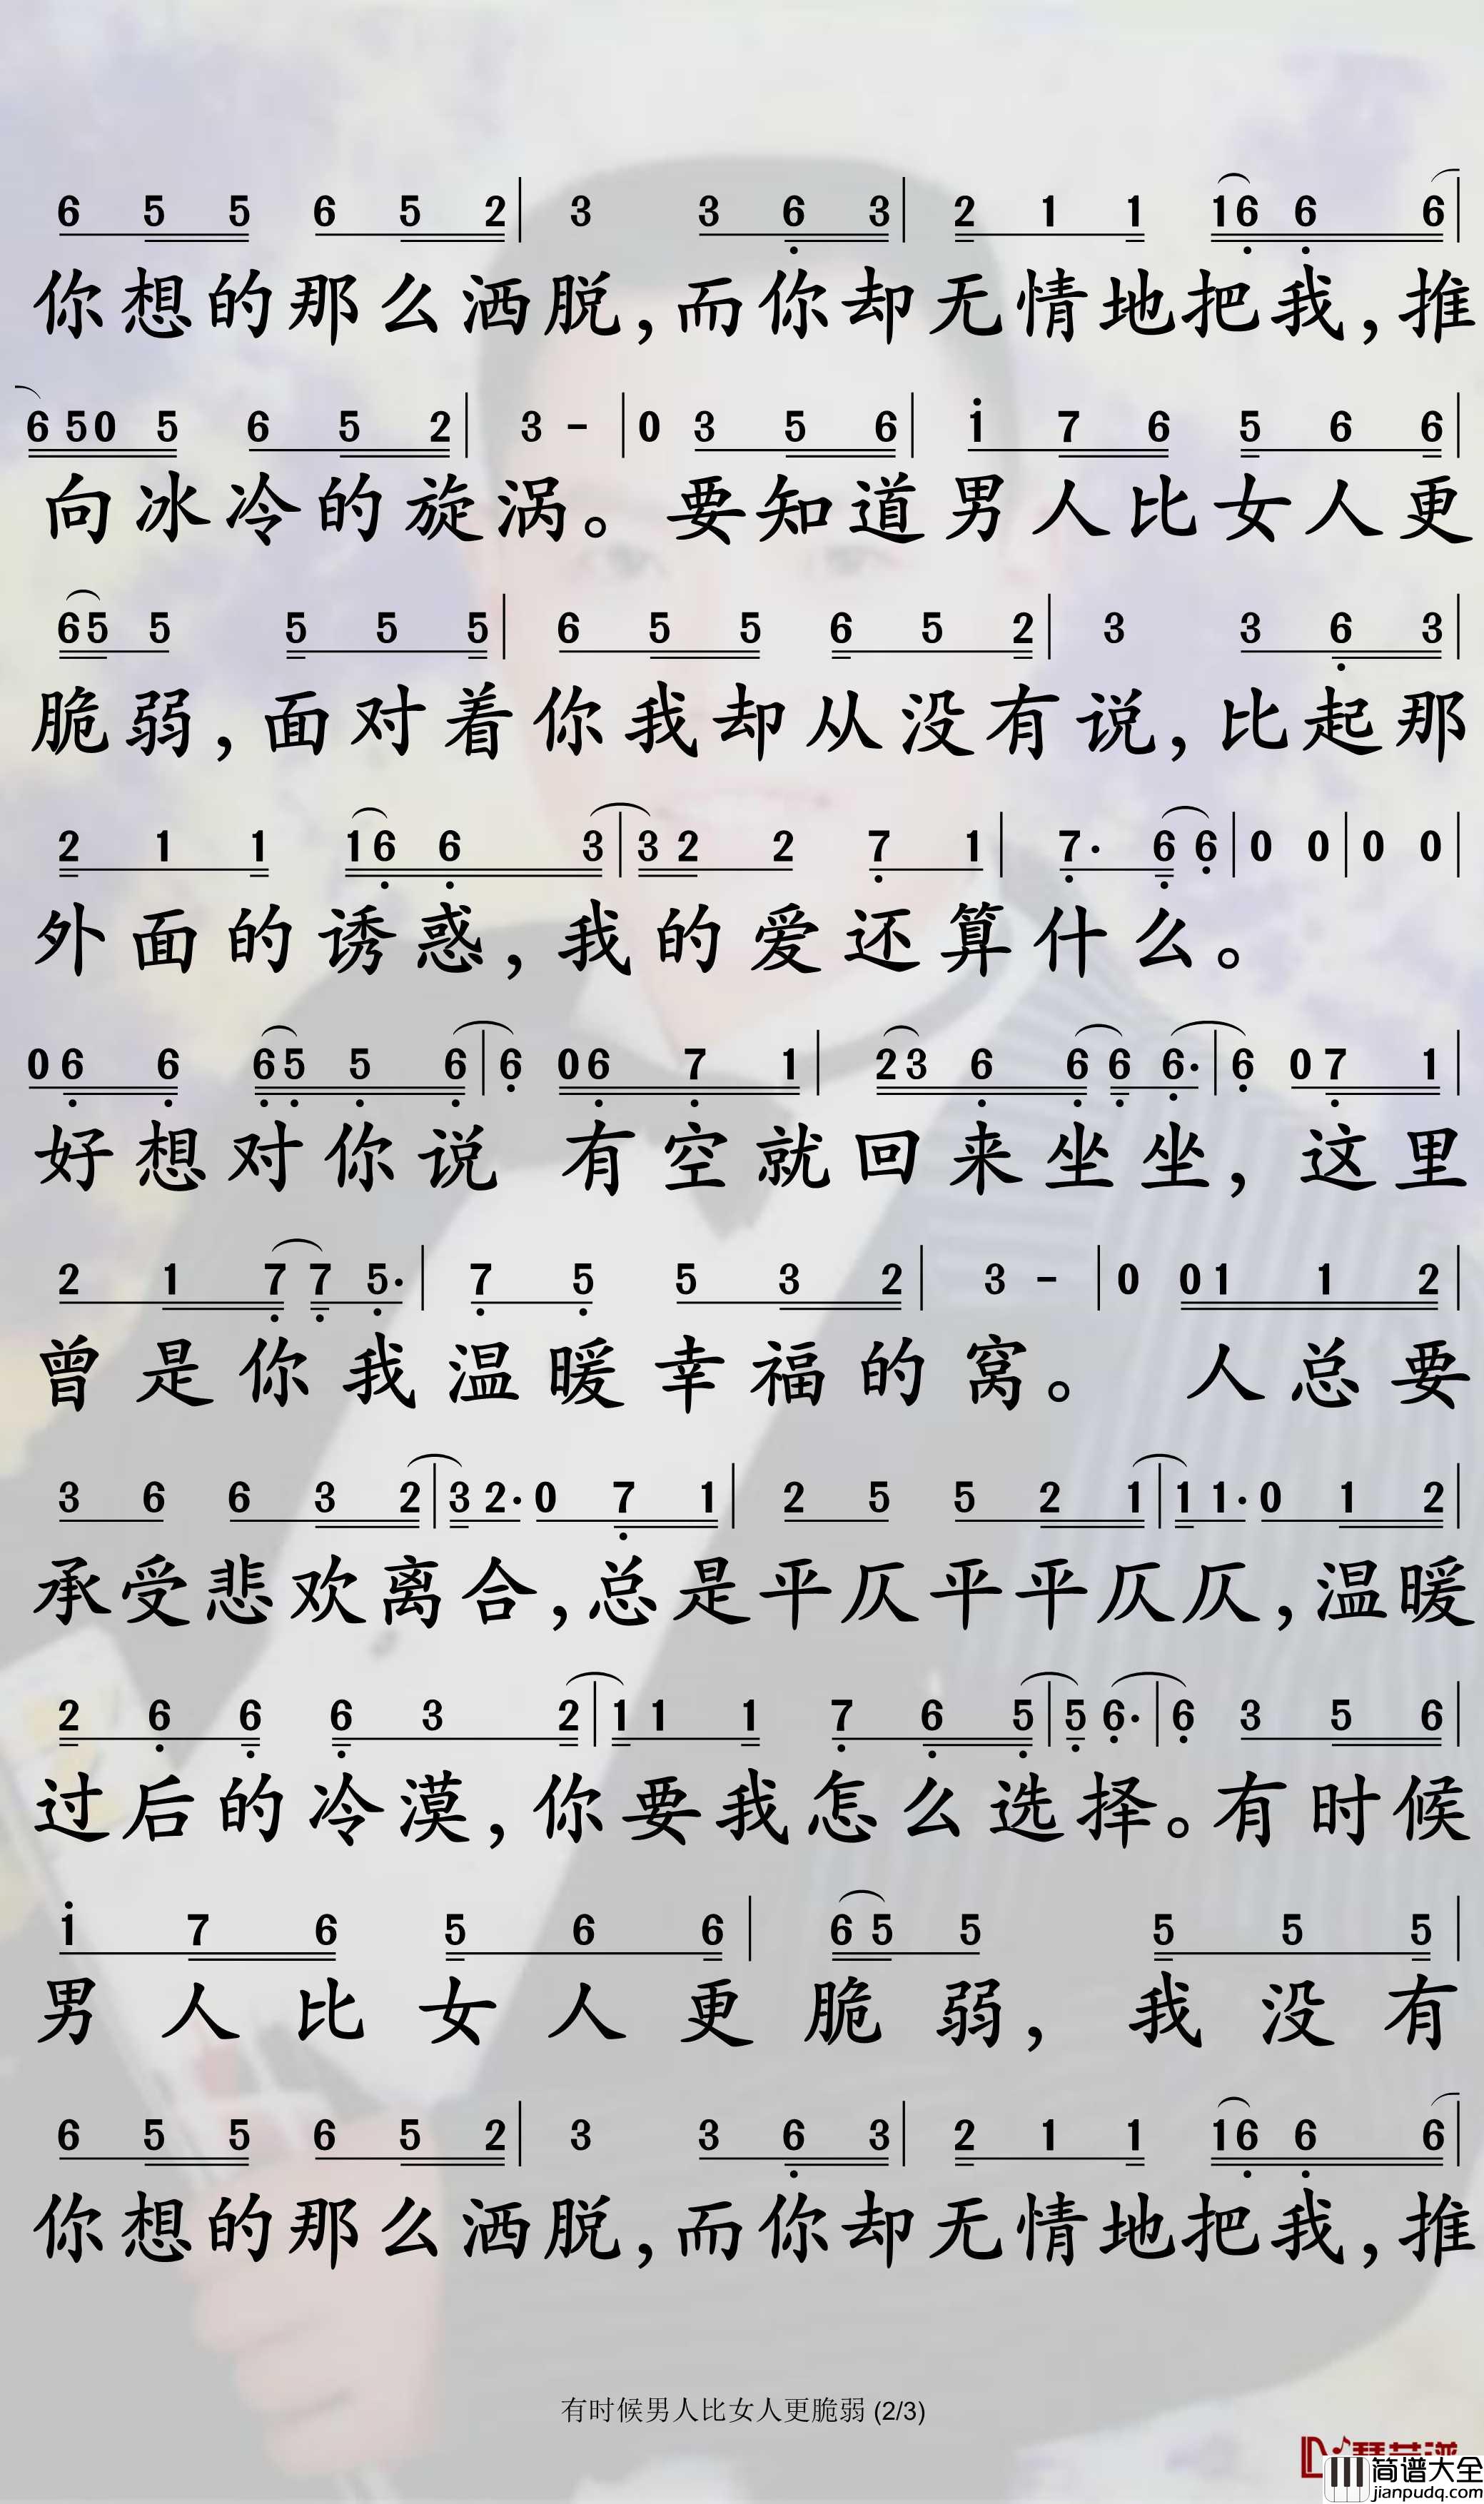 6 5 5 6 5 2 | 3 3 6 3 | 2 1 1 16 6 6 |
你想的那么洒脱,而你却无情地把我,推
6 50 5 6 5 2 | 3 - | 0 3 5 6 | i 7 6 5 6 6 |
向冰冷的旋涡。要知道男人比女人更
65 5 5 5 5 | 6 5 5 6 5 2 | 3 3 6 3 |
脆弱,面对着你我却从没有说,比起那
2 1 1 16 6 3 | 3 2 2 7 1 | 7· 6 6 | 0 0 | 0 0 |
外面的诱惑,我的爱还算什么。
0 6 6 65 5 6 | 6 06 7 1 | 23 6 6 6 6· | 6 0 7 1 |
好想对你说 有空就回来坐坐,这里
2 1 7 7 5· | 7 5 5 3 2 | 3 - | 0 01 1 2 |
曾是你我温暖幸福的窝。 人总要
3 6 6 3 2 | 3 2· 0 7 1 | 2 5 5 2 1 | 1 1· 0 1 2 |
承受悲欢离合,总是平仄平平仄仄,温暖
2 6 6 6 3 2 | 1 1 1 7 6 5 | 5 6· | 6 3 5 6 |
过后的冷漠,你要我怎么选择。有时候
i 7 6 5 6 6 | 6 5 5 5 5 5 |
男人比女人更脆弱,我没有
6 5 5 6 5 2 | 3 3 6 3 | 2 1 1 16 6 6 |
你想的那么洒脱,而你却无情地把我,推
有时候男人比女人更脆弱 (2/3)
简谱大全
jianpudq.com